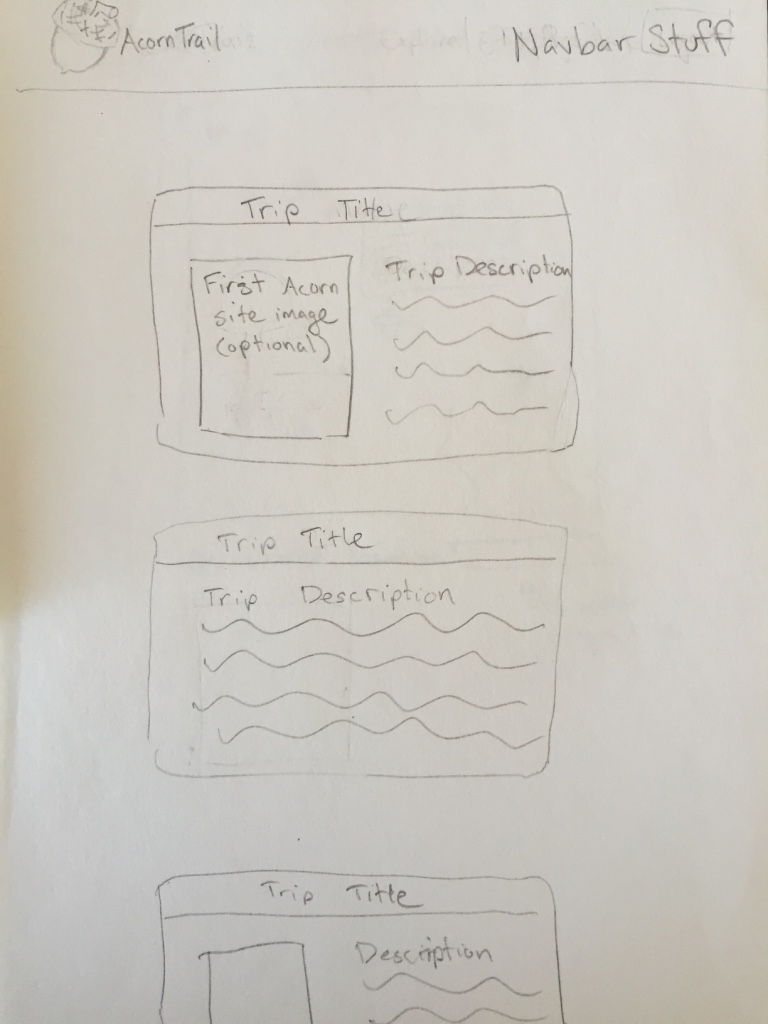 AcornTrail
Navbar Stuff
Trip Title
First Acorn
site image
(optional)
Trip Description
Trip Title
Trip Description
Trip Title
Description